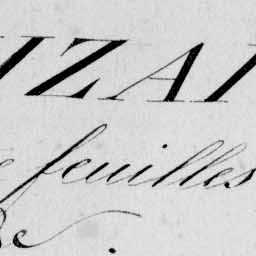 IZAI
e feuilles
De .